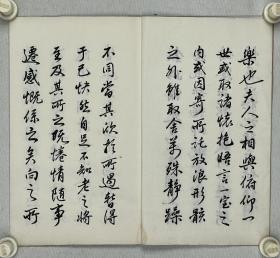 樂也夫人之相與俯仰一
世或取諸懷抱晤言一室之
內或因寄所託放浪形骸
之外雖取舍萬殊靜躁
不同當其欣於所遇暫得
于己怏然自足不知老之將
至及其所之既惓情隨事
遷感慨係之矣向之所